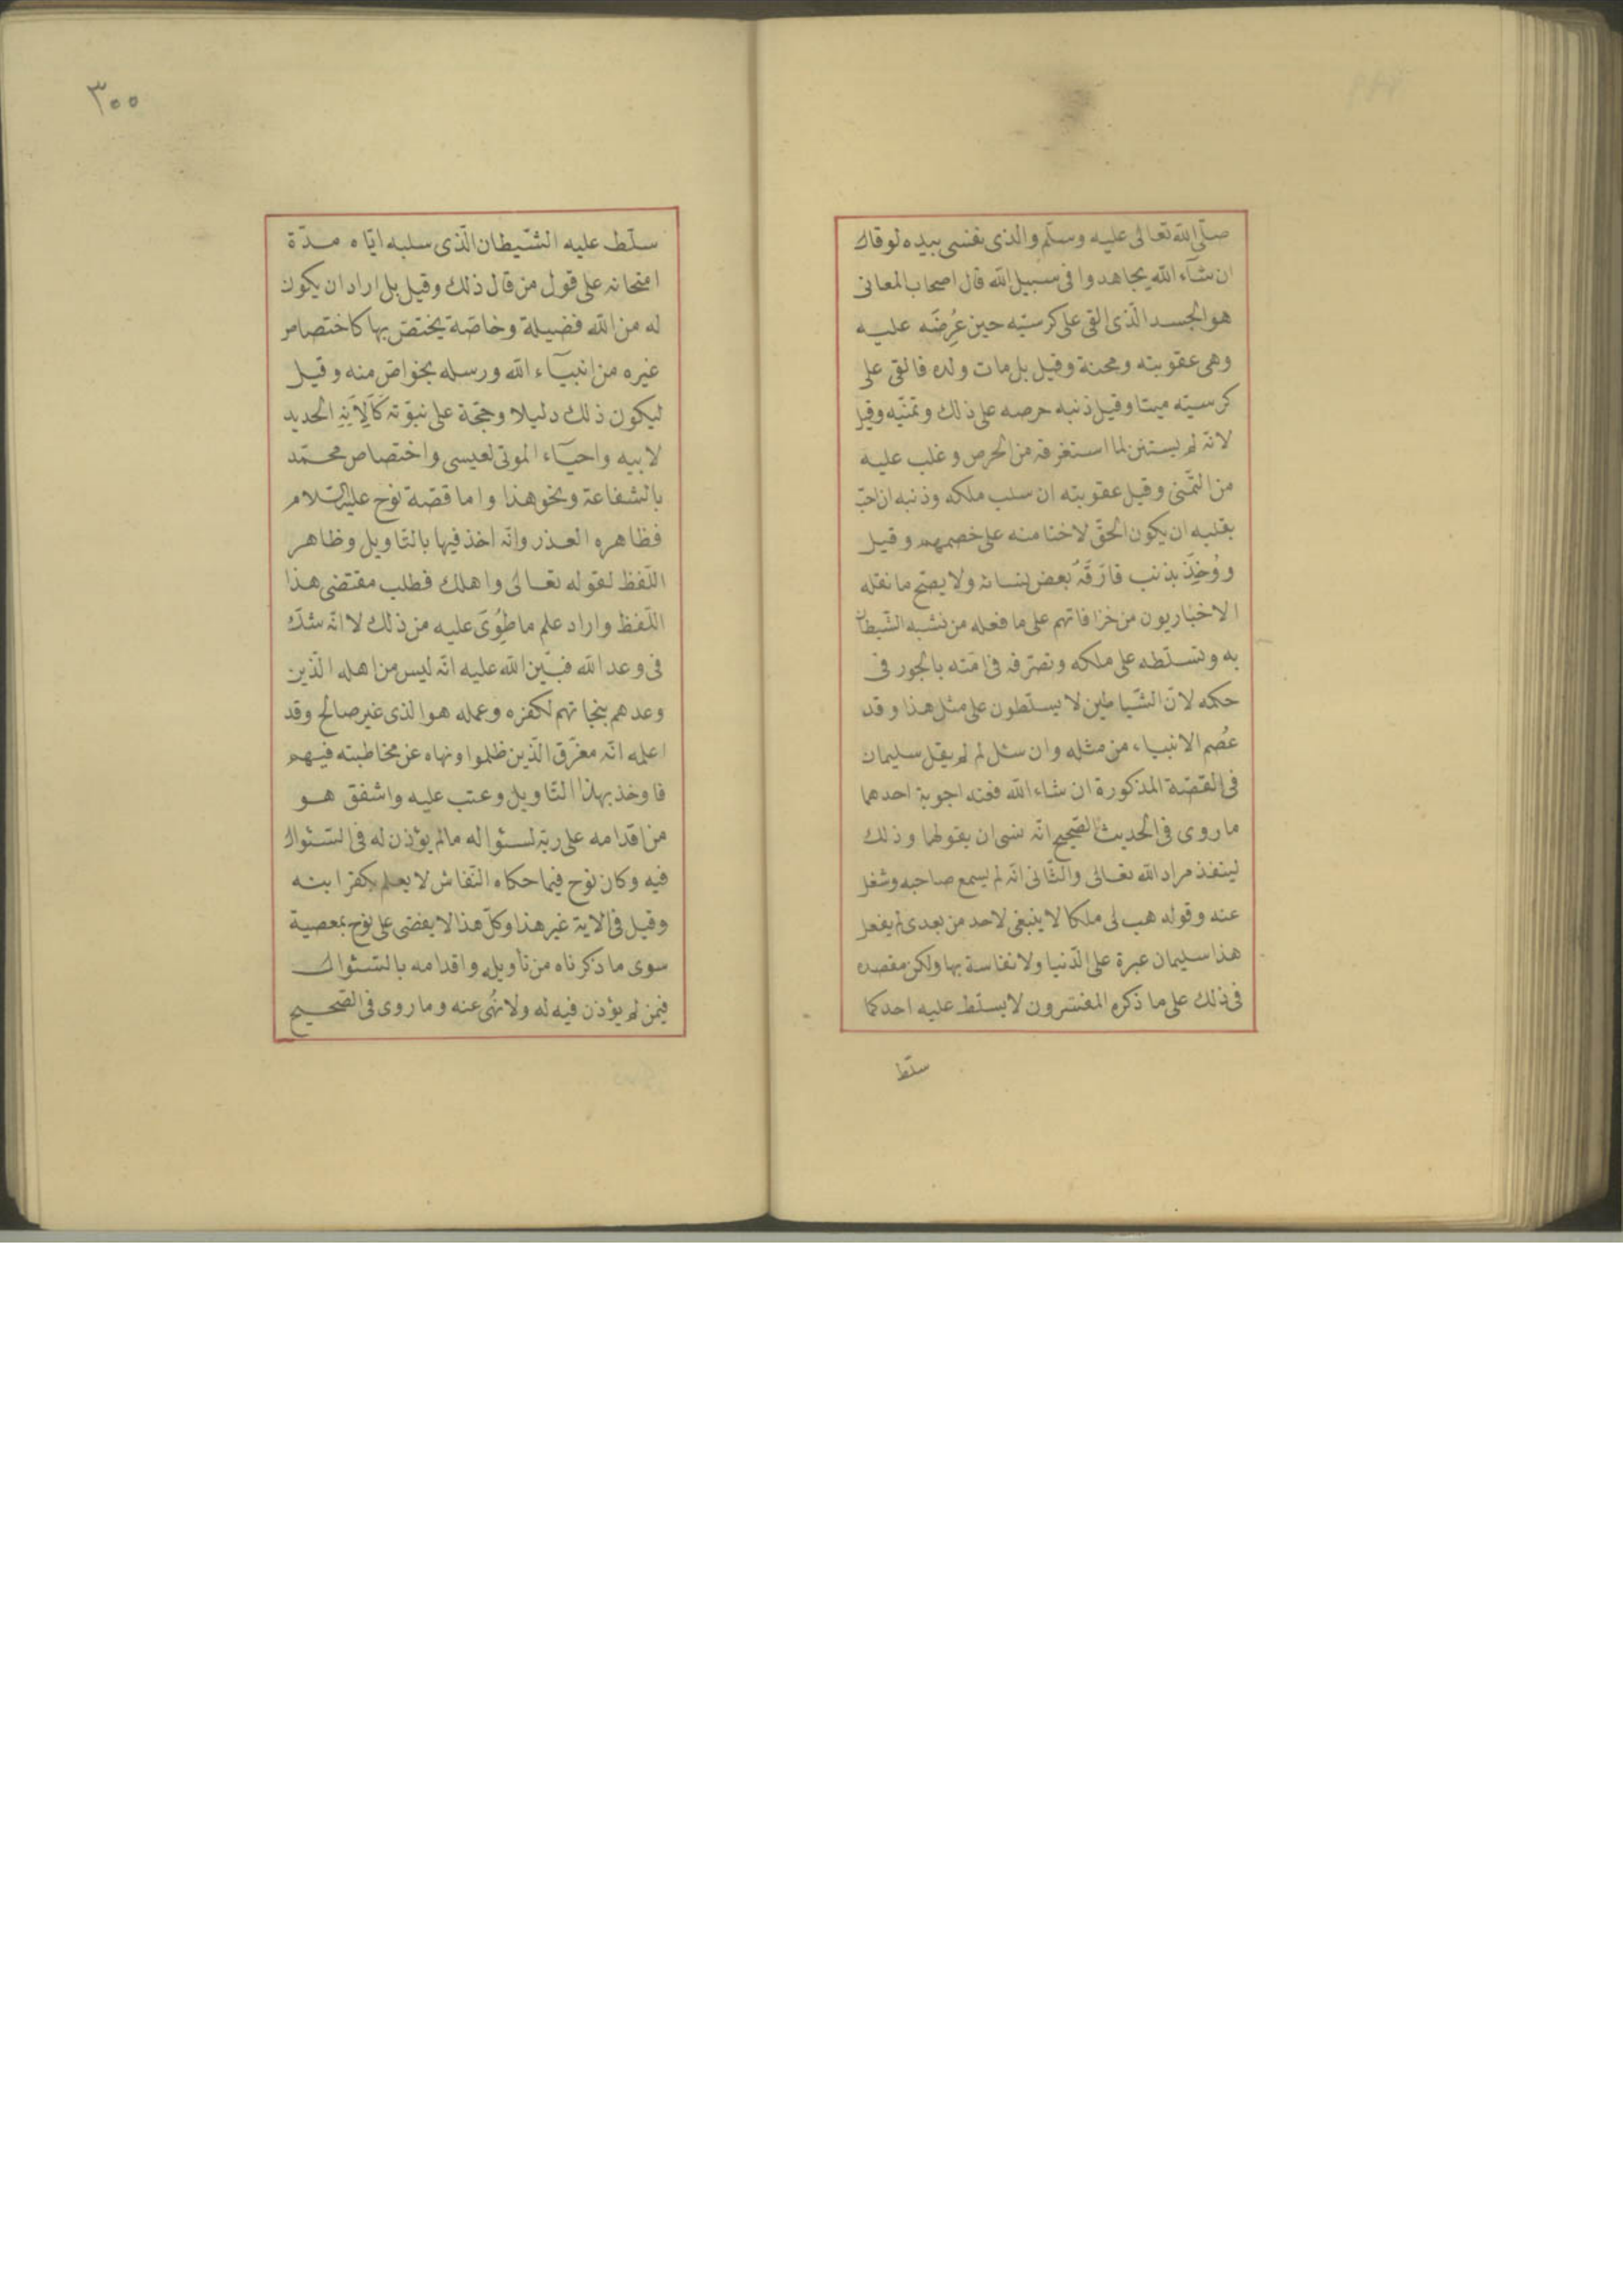 صلّى الله تعالى عليه وسلّم والذى نفسى بيده لو قال
ان شآء الله يجاهدوا فى سبيل الله قال اصحاب المعانى
هو الجسد الّذى القى على كرسيّه حين عُرِضَه عليه
وهى عقوبته ومحنة وقيل بل مات ولده فالقى على
كرسيّه ميتا وقيل ذنبه حرصه على ذلك وتمنّيه وقيل
لانّه لم يستثن لما استغرقه من الحرص وغلب عليه
من التّمنى وقيل عقوبته ان سلب ملكه وذنبه ان احبّ
بقلبه ان يكون الحقّ لاختامنه على خصمهم وقيل
ووُخِذَ بذنب قارَفَهُ بعض نسائه ولا يصحّ ما نقله
الاخباريون من خزافاتهم على ما فعله من تشبه الشّيطان
به وتسلّطه على ملكه وتصرّفه فى امّته بالجور فى
حكمه لانّ الشّياطين لا يسلّطون على مثل هذا وقد
عُصم الانبياء من مثله وان سئل لم لم يقل سليمان
فى القصّة المذكورة ان شاء الله فعنه اجوبة احدهما
ما روى فى الحديث الصّحيح انّه نسى ان يقولها وذلك
لينفذ مراد الله تعالى والثّانى انّه لم يسمع صاحبه وشغل
عنه وقوله هب لى ملكا لا ينبغى لاحد من بعدى لم يفعل
هذا سليمان غيرة على الدّنيا ولا نفاسة بها ولكن مقصده
فى ذلك على ما ذكره المفسّرون لا يسلّط عليه احد كما
سلّط
٣٠٠
سلّط عليه الشّيطان الّذى سلبه ايّاه مدّة
امتحانه على قول من قال ذلك وقيل بل اراد ان يكون
له من الله فضيلة وخاصّة يختصّ بها كاختصاص
غيره من انبيآء الله ورسله بخواصّ منه وقيل
ليكون ذلك دليلا وحجّة على نبوّته كَاَلِاَنِهِ الحديد
لابيه واحيآء الموتى لعيسى واختصاص محمّد
بالشفاعة ونحو هذا واما قصّة نوح عليه السّلام
فظاهره العذر وانّه اخذ فيها بالتّاويل وظاهر
اللّفظ لقوله تعالى واهلك فطلب مقتضى هذا
اللّفظ واراد علم ما طُوِىَ عليه من ذلك لا انّه شكّ
فى وعد الله فبيّن الله عليه انّه ليس من اهله الّذين
وعدهم بنجاتهم لكفره وعمله هو الذى غير صالح وقد
اعلمه انّه مغرّق الّذين ظلموا ونهاه عن مخاطبته فيهم
فاوخذ بهذا التّاويل وعتب عليه واشفق هو
من اقدامه على ربّه لسئواله مالم يؤذن له فى السّئوال
فيه وكان نوح فيما حكاه النّقاش لا يعلم بكفر ابنه
وقيل فى الاية غير هذا وكلّ هذا لا يقضى على نوح بمعصية
سوى ما ذكرناه من تأويله واقدامه بالسّئوال
فيمن لم يؤذن فيه له ولا نُهى عنه وما روى فى الصّحيح